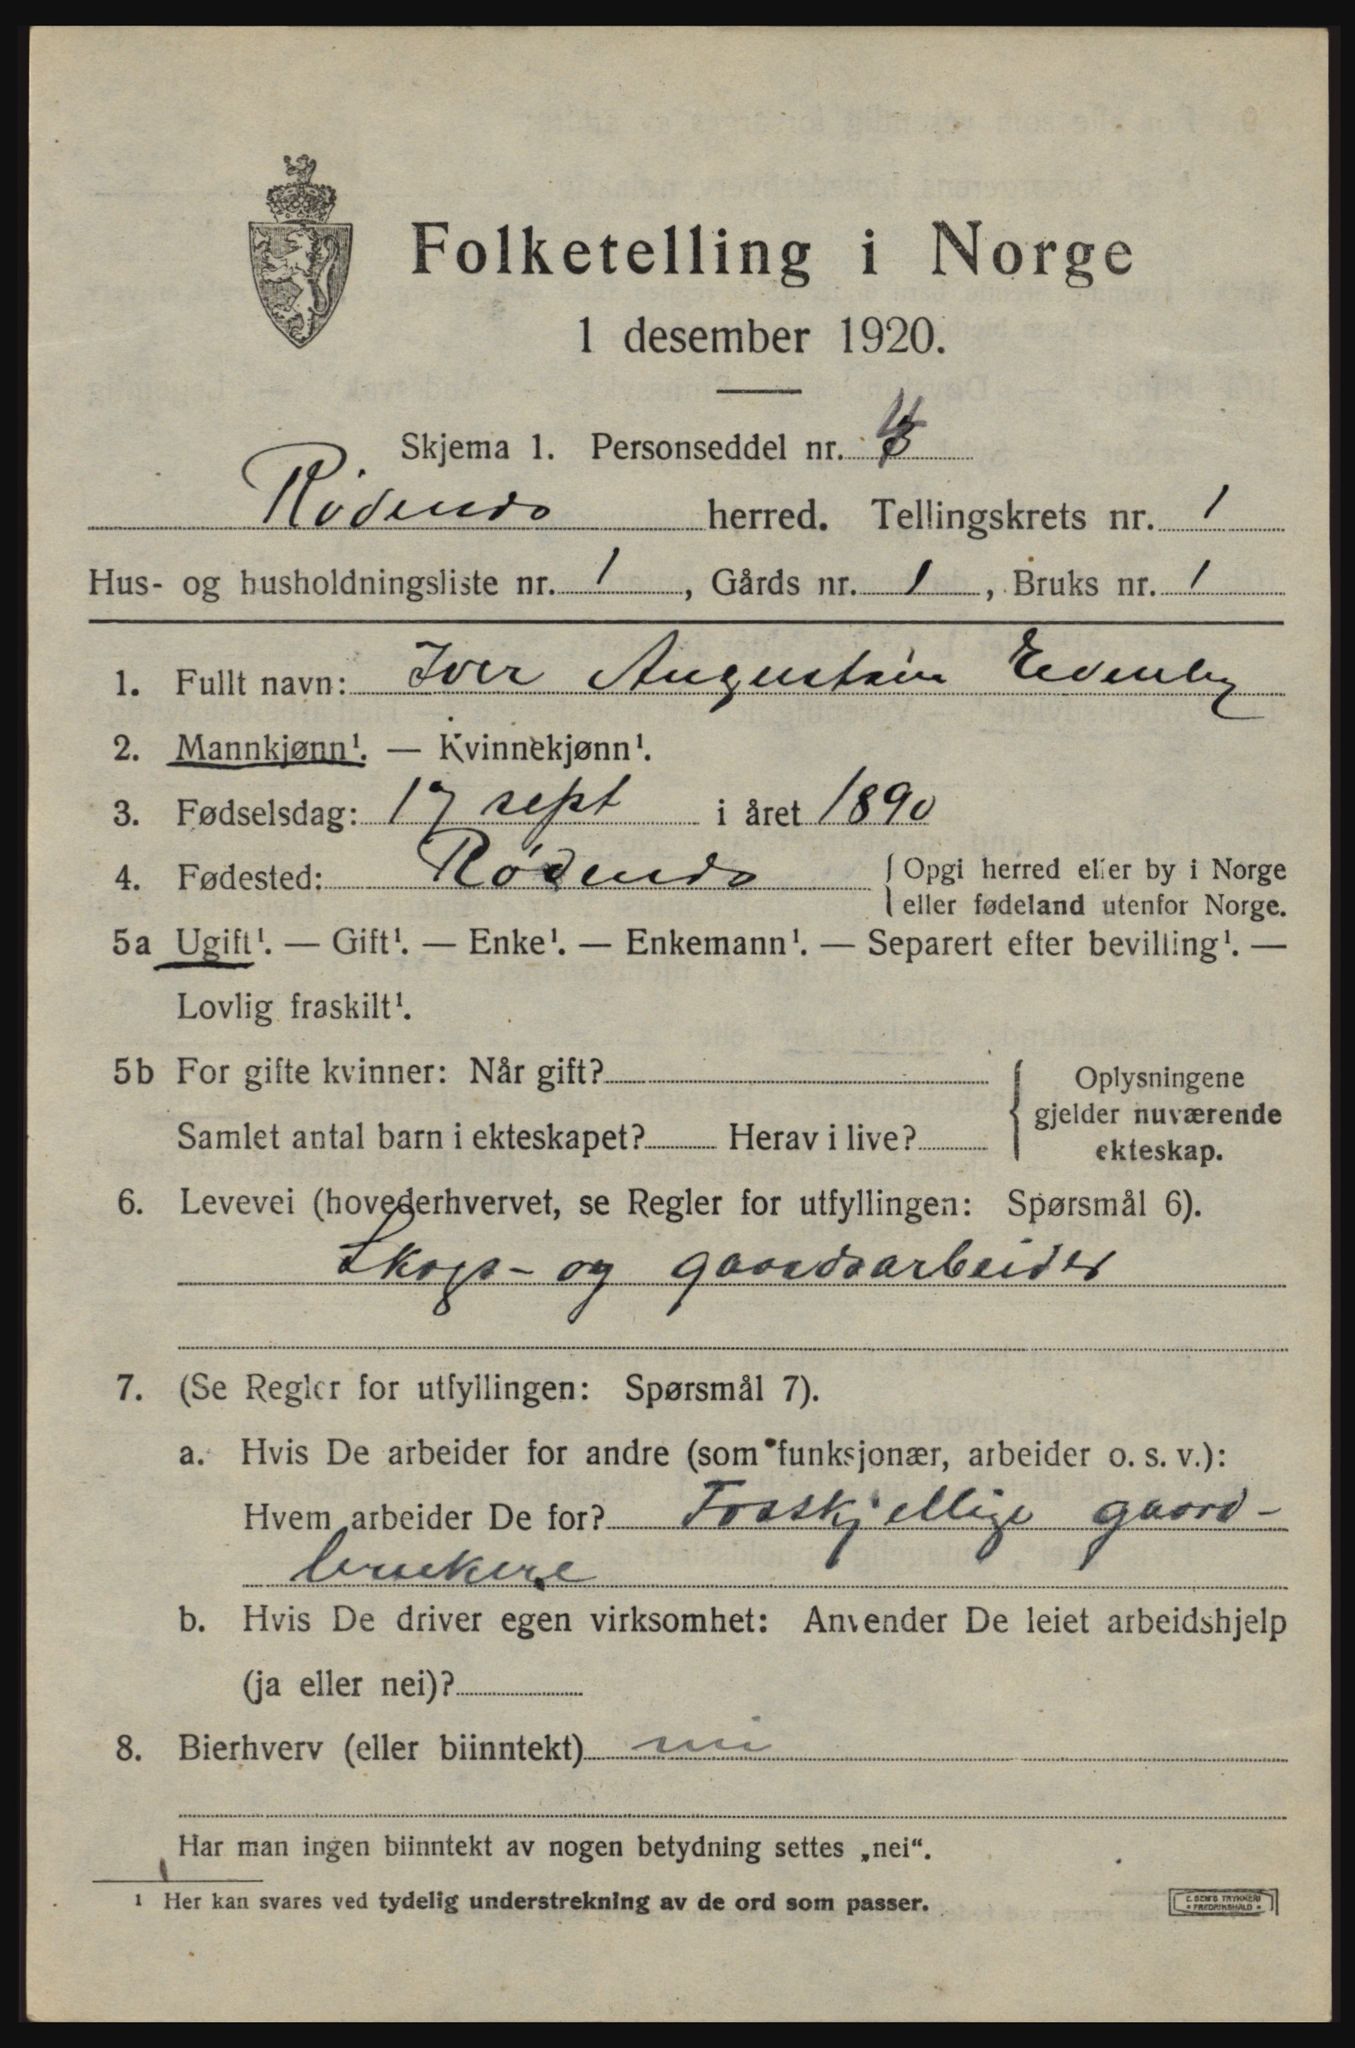 Folketelling i Norge
1 desember 1920.
Skjema 1. Personseddel nr. 4
Rödenes herred. Tellingskrets nr. 1
Hus- og husholdningsliste nr. 1, Gårds nr. 1, Bruks nr. 1
1. Fullt navn: Iver Augustsen
2. Mannkjønn¹. — Kvinnekjønn¹.
3. Fødselsdag: 17 sept i året 1890
4. Fødested: Rödenes { Opgi herred eller by i Norge
eller fødeland utenfor Norge.
5a Ugift¹. — Gift¹. — Enke¹. — Enkemann¹. — Separert efter bevilling¹. —
Lovlig fraskilt¹.
5b For gifte kvinner: Når gift? { Oplysningene
gjelder nuværende
Samlet antal barn i ekteskapet? Herav i live? ekteskap.
6. Levevei (hovederhvervet, se Regler for utfyllingen: Spørsmål 6).
Skogs- og gaardsarbeider
7. (Se Regler for utfyllingen: Spørsmål 7).
a. Hvis De arbeider for andre (som funksjonær, arbeider o. s. v.):
Hvem arbeider De for? Forskjellige gaard-
brukere
b. Hvis De driver egen virksomhet: Anvender De leiet arbeidshjelp
(ja eller nei)?
8. Bierhverv (eller biinntekt) nei
Har man ingen biinntekt av nogen betydning settes „nei“.
¹ Her kan svares ved tydelig understrekning av de ord som passer.
E. SEM'S TRYKKERI
FREDRIKSHALD